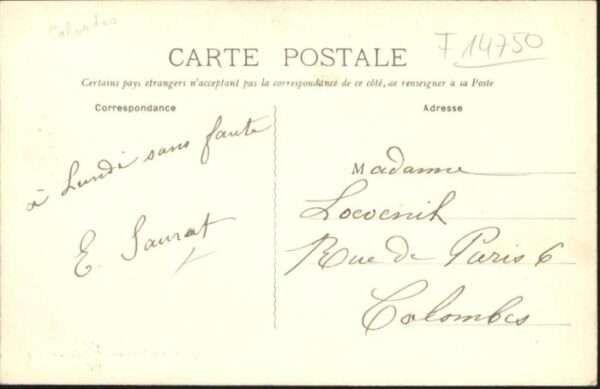 Calombes
F 14750
CARTE POSTALE
Certains pays etrangers n'acceptant pas la correspondance de ce côté, se renseigner à la Poste
Correspondance
Adresse
à Lundi sans faute
E. Saurat
Madame
Locvenik
Rue de Paris 6
Colombes